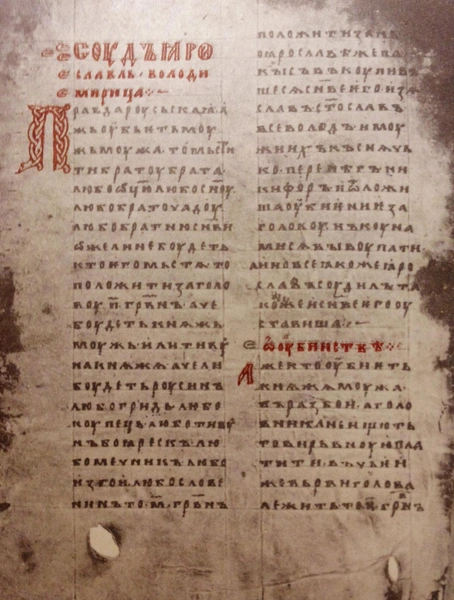 СОУДЪ ꙖРО
СЛАВЛЬ · ВОЛОДИ
МИРИЦА
Правда роусьскаꙗ · а
жь оубьѥть моу
жь моужа · то мьсти
ти братоу брата ·
любо ѡц҃ю любо сн҃оу
любо братоучадоу
любо братню сн҃ви
ѡже ли не боудеть
кто ѥго мьстѧ то
положити за голо
воу · п҃ · грвн҃ъ аче
боудеть кнѧжь
моужь или тивоу
на кнѧжѧ аче ли
боудеть роусинъ
любо гридь любо
коупець любо тивоу
нъ боꙗрескъ лю
бо мечникъ любо
изгои любо слове
нинъ то · м҃ · грвн҃ъ
положити за нь
по ꙗрославѣ же па
кы съвъкоупивъ
шесѧ сн҃ве ѥго изѧ
славъ ст҃ославъ
всеволодъ и моу
жи ихъ къснѧчь
ко · перенѣгъ ни
кифоръ и ѿложи
ша оубиѥниѥ за
головоу нъ коуна
ми сѧ выкоупати
а ино все ꙗкоже ꙗро
славъ соудилъ та
коже и сн҃ве ѥго оу
ставиша
Ѡ ОУБИИСТВѢ
Аже кто оубиѥть
кнѧжа моужа
въ разбои · а голо
вника не ищють
то вирьвноую пла
тити въ чьѥи
же вьрви голова
лежить то · п҃ · грвн҃ъ